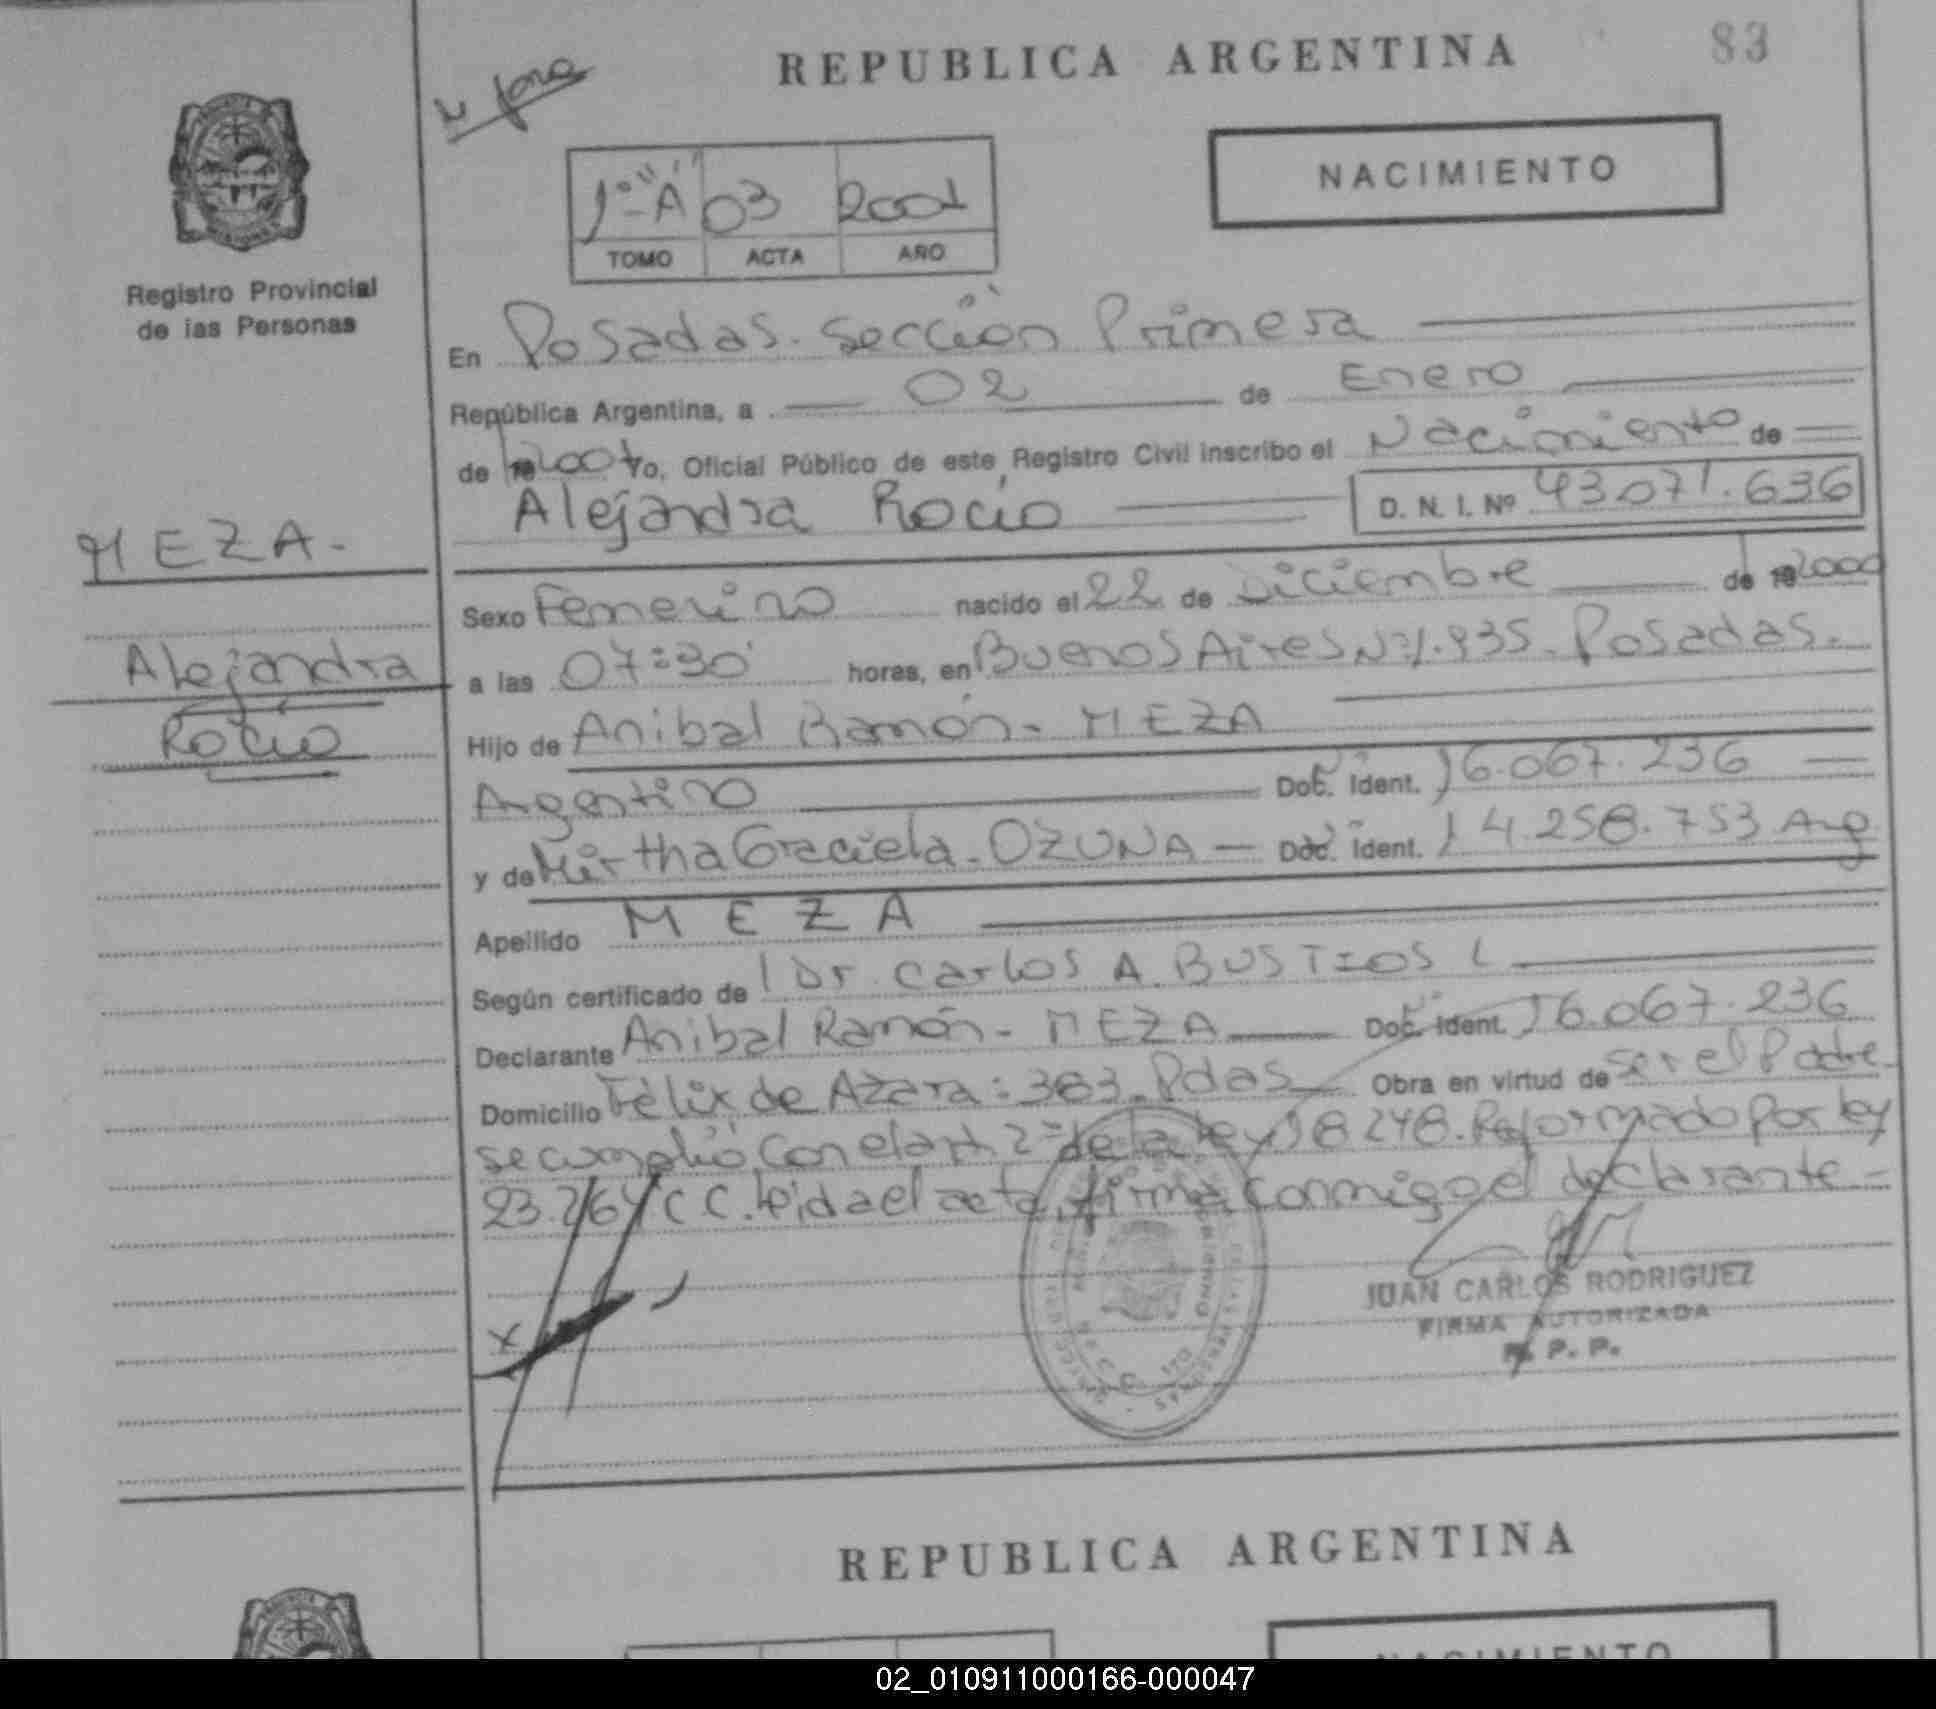 REPUBLICA ARGENTINA
83
NACIMIENTO
1º "A" 03 2001
TOMO ACTA AÑO
Registro Provincial
de las Personas
En Posadas. Sección Primera
República Argentina, a 02 de Enero
de 2001 Yo, Oficial Público de este Registro Civil inscribo el Nacimiento de
Alejandra Rocío D. N. I. Nº 43.071.636
MEZA.
Alejandra
Rocío
Sexo Femenino nacido el 22 de Diciembre de 2000
a las 07:30' horas, en Buenos Aires Nº 1.935. Posadas.
Hijo de Anibal Ramón. MEZA
Argentino Doc. Ident. 16.067.236
y de Mirtha Graciela. OZUNA Doc. Ident. 14.258.753 Arg
Apellido MEZA
Según certificado de Dr. Carlos A. BUSTIOS L
Declarante Anibal Ramón. MEZA Doc. Ident. 16.067.236
Domicilio Félix de Azara: 383. Pdas Obra en virtud de ser el Padre
se cumplió con el art 2º de la ley 18248. Reformado por ley
23.264 C C. leida el acta, firma conmigo el declarante
X
JUAN CARLOS RODRIGUEZ
FIRMA AUTORIZADA
R. P. P.
REPUBLICA ARGENTINA
NACIMIENTO
02_010911000166-000047